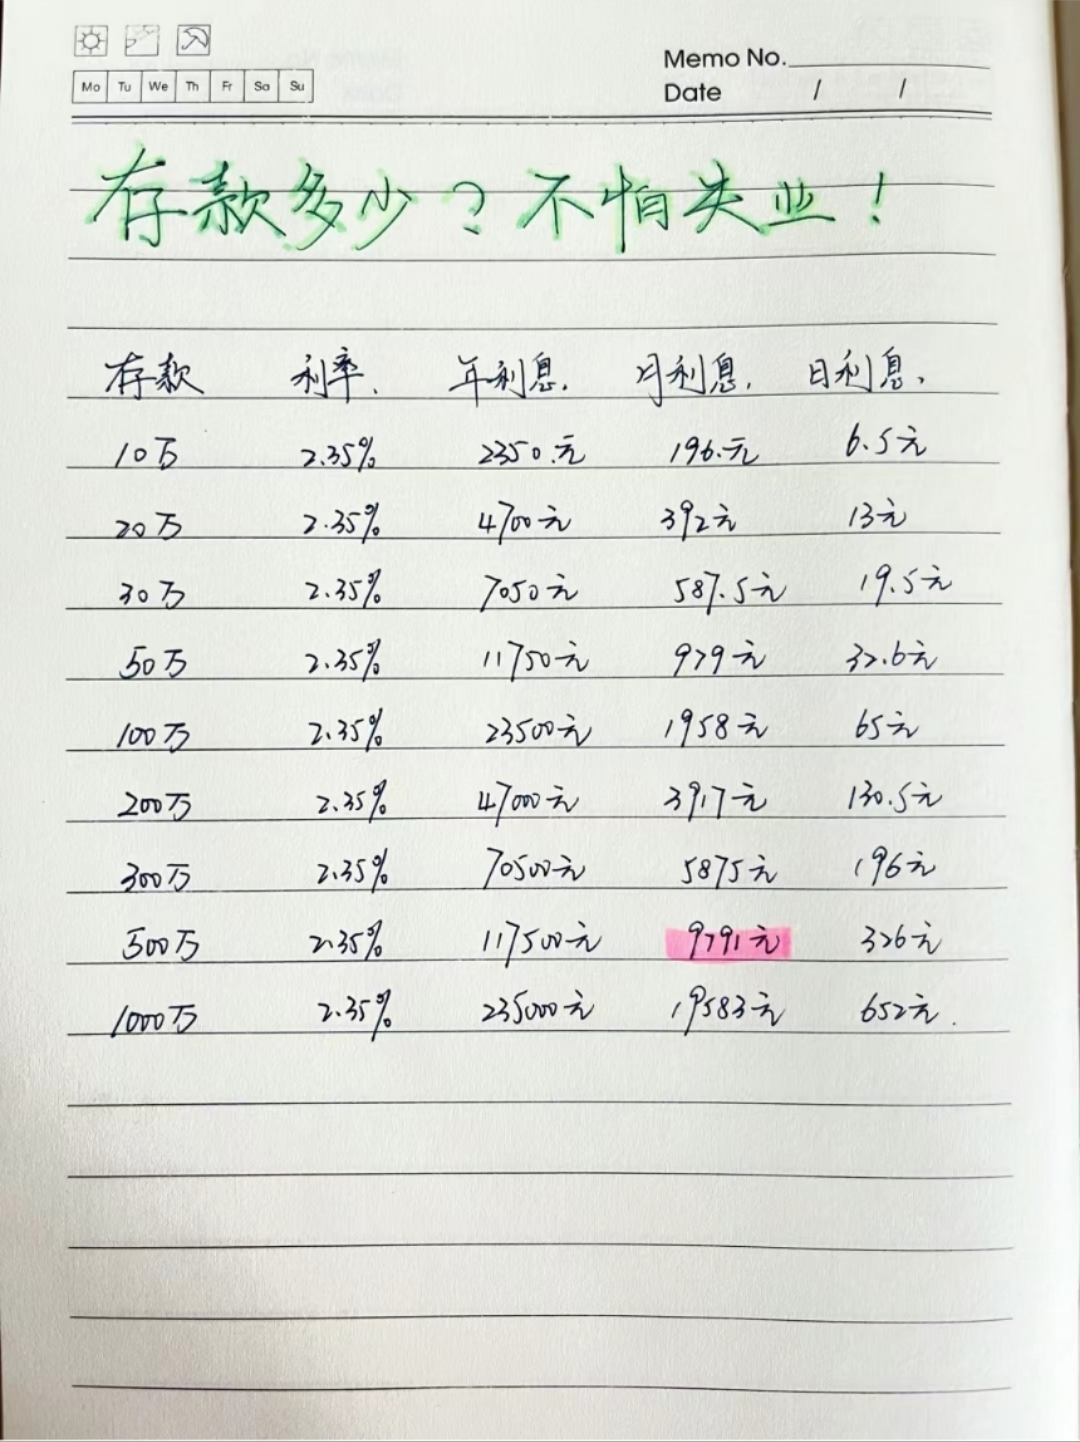 Memo No.
Mo Tu We Th Fr Sa Su
Date / /
存款多少？不怕失业！
存款 利率. 年利息. 月利息. 日利息.
10万 2.35% 2350.元 196.元 6.5元
20万 2.35% 4700元 392元 13元
30万 2.35% 7050元 587.5元 19.5元
50万 2.35% 11750元 979元 32.6元
100万 2.35% 23500元 1958元 65元
200万 2.35% 47000元 3917元 130.5元
300万 2.35% 70500元 5875元 196元
500万 2.35% 117500元 9791元 326元
1000万 2.35% 235000元 19583元 652元.